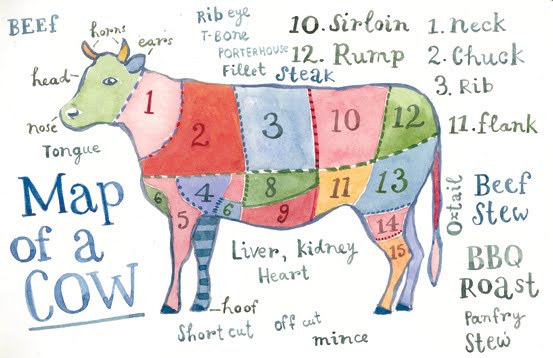 BEEf
horns
ears
head
nose
Tongue
Map
of a
COW
Rib eye
T-Bone
PORTERHOUSE
Fillet Steak
10. Sirloin
12. Rump
1. Neck
2. Chuck
3. Rib
11. flank
1
2
3
10
12
6
4
5
6
8
9
11
13
14
15
Oxtail
Beef
Stew
BBQ
Roast
Panfry
Stew
Liver, kidney
Heart
hoof
Short cut
off cut
mince